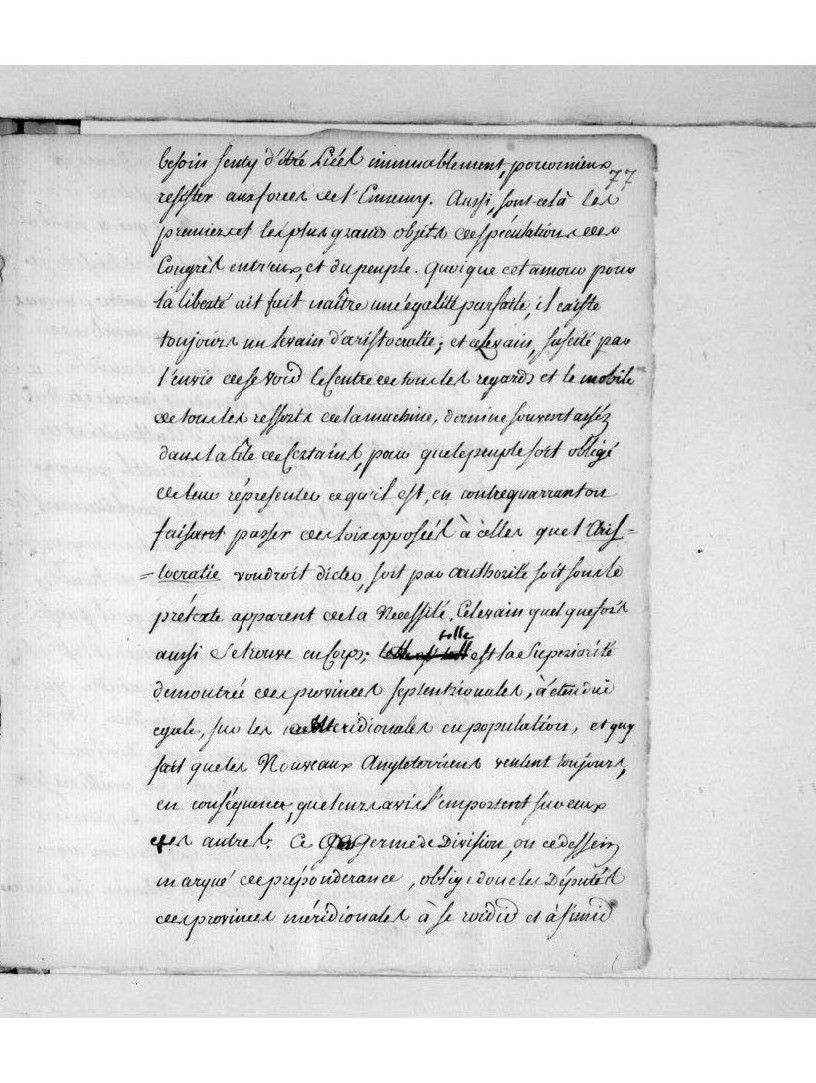 77
besoin senty d'étré Liéés immuablement, pour mieux
resister aux forces de l'Ennemy. Aussi, sont-celà les
premiers et les plus grands objets de spéculations des
Congrès entr'eux, et du peuple. Quoique cet amour pour
la liberté ait fait naître une égalité parfaite, il éxiste
toujours un levain d'aristocratie; et ce Levain, suscité par
l'envie de se voir le Centre de tous les regards et le mobile
de tous les ressorts de la machine, domine souvent asséz
dans la tête de Certains, pour que le peuple soit obligé
de leur réprésenter ce qu'il est, en contrequarrant ou
faisant passer des loix opposéés à celles que l'Aris=
=tocratie voudroit dicter, soit par authorité soit sous le
prétexte apparent de la Necessité. Ce levain quelquefois
aussi se trouve en Corps; telle est la Superiorité
démontrée des provinces septentrionales, à étendue
egale, sur les Meridionales en population, et quy
fait que les Nouveaux Angleterriens veulent toujours,
en conséquence, que leurs avis l'emportent sur ceux
des autres. Ce Germe de Division, ou ce dessein
marqué de préponderance, oblige donc les Députés
des provinces méridionales à se roidir et à s'unir